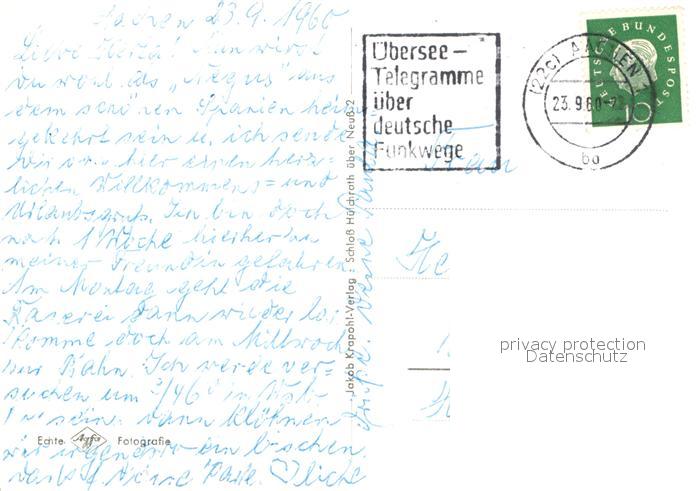 Aachen 23.9.1960
Liebe Herta! Nun wirst
du wohl als "Negus" aus
dem schönen Spanien heim-
gekehrt sein u. ich sende
dir von hier einen herz-
lichen Willkommens= und
Urlaubsgruß. Ich bin doch
noch 1 Woche hierher zu
meiner Freundin gefahren.
Am Montag geht die
Raserei dann wieder los
komme doch am Mittwoch
zur Bahn. Ich werde ver=
suchen um
sein, dann klöhnen
wir irgendwo ein bischen.
Dank f. deine Karte. liche
Grüße deine
Echte Agfa Fotografie
Jakob Krapohl-Verlag : Schloß Hülchrath über Neuß 2
Übersee-
Telegramme
über
deutsche
Funkwege
(22c) AACHEN 1
23.9.60-22
bd
DEUTSCHE BUNDESPOST
10
privacy protection
Datenschutz